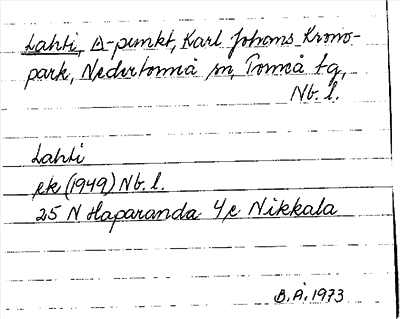 Lahti, Δ-punkt, Karl Johans Krono-
park, Nedertorneå sn, Torneå tg,
Nb. l.
Lahti
ek (1949) Nb. l.
25 N Haparanda 4e Nikkala
B.Å. 1973